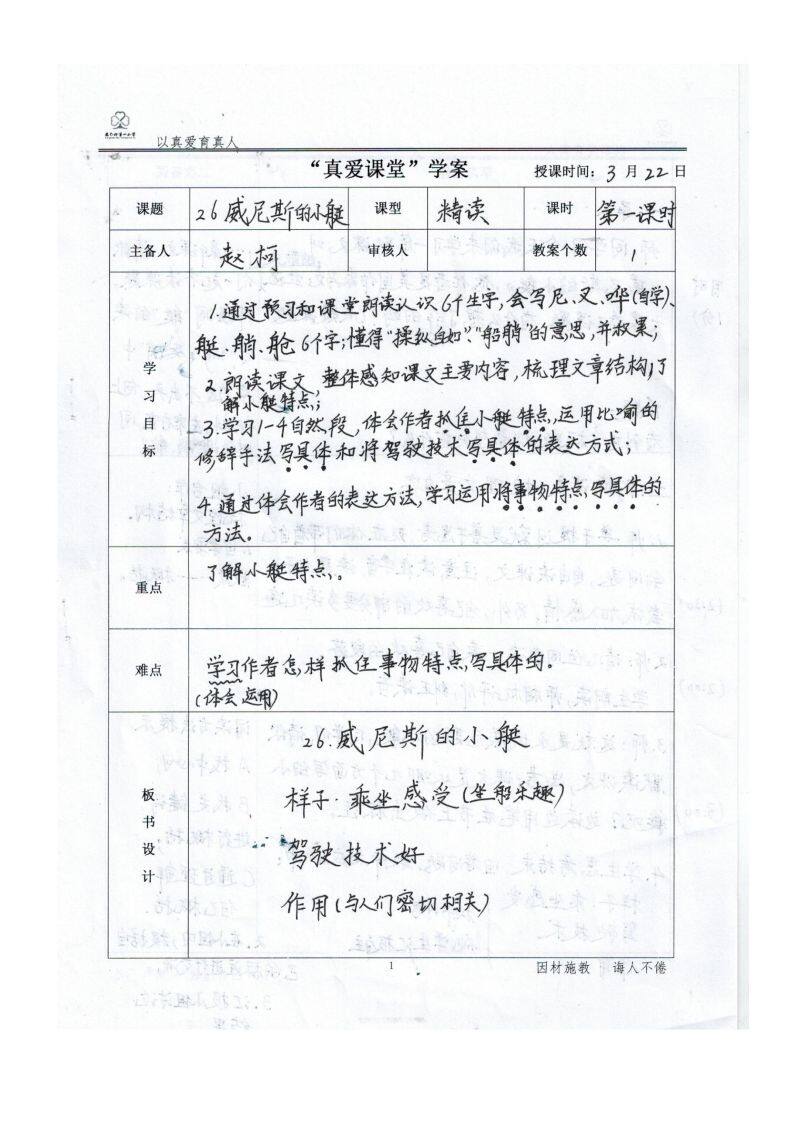 以真爱育真人
“真爱课堂”学案 授课时间：3 月 22 日
课题 26威尼斯的小艇 课型 精读 课时 第一课时
主备人 赵柯 审核人 教案个数 1
学习目标
1.通过预习和课堂朗读认识6个生字,会写尼、叉、哗(自学)、
艇、艄、舱6个字;懂得“操纵自如”、“船艄”的意思,并积累;
2.朗读课文,整体感知课文主要内容,梳理文章结构,了
解小艇特点;
3.学习1-4自然段,体会作者抓住小艇特点,运用比喻的
修辞手法写具体和将驾驶技术写具体的表达方式;
4.通过体会作者的表达方法,学习运用将事物特点写具体的
方法。
重点 了解小艇特点。
难点 学习作者怎样抓住事物特点写具体的。
(体会 运用)
板书设计
26.威尼斯的小艇
样子·乘坐感受(坐船乐趣)
驾驶技术好
作用(与人们密切相关)
1 因材施教 诲人不倦